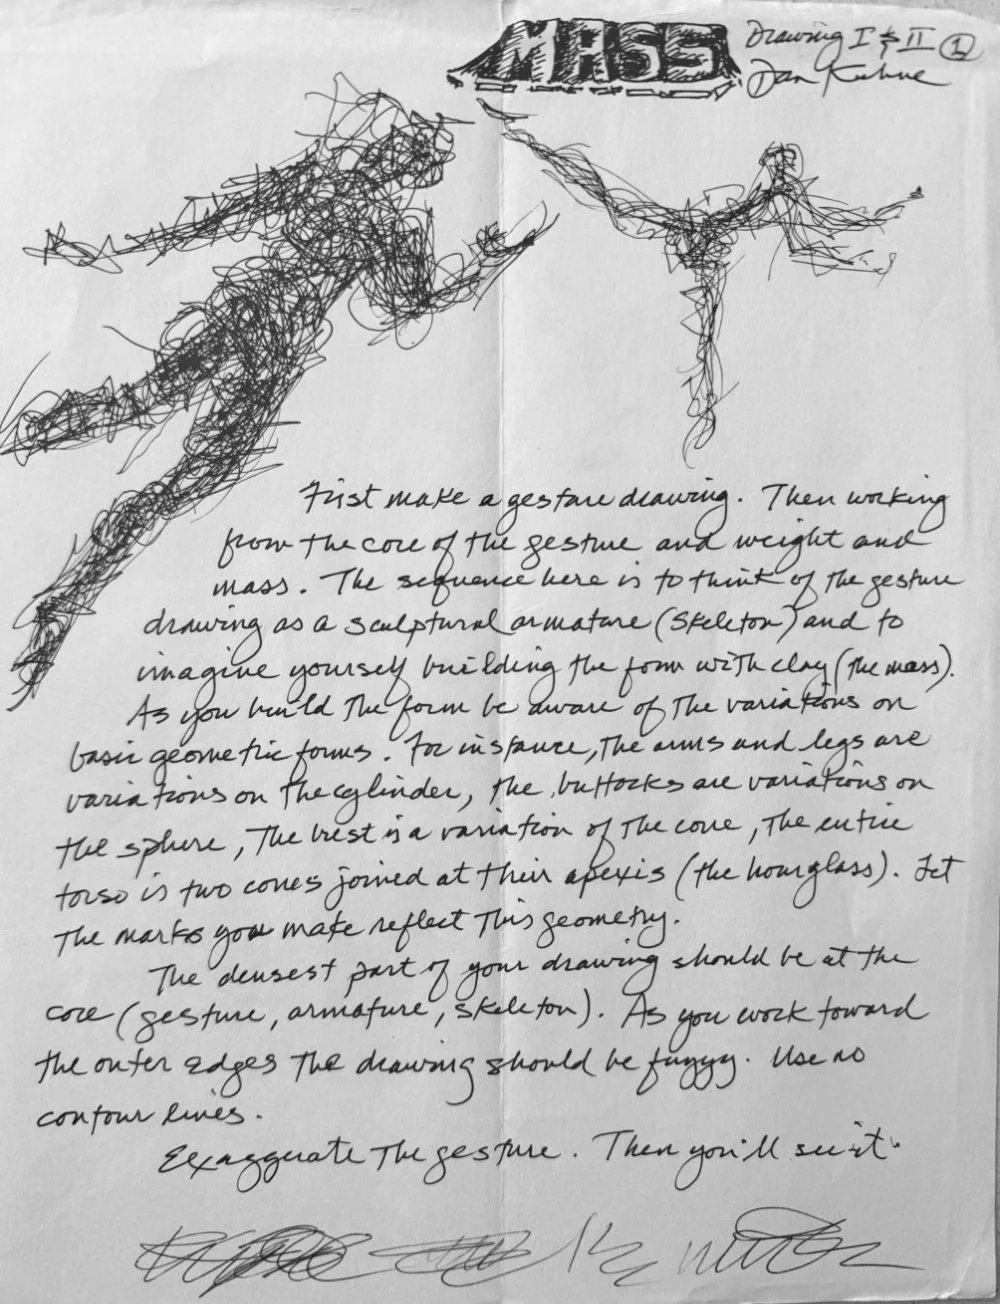 MASS
Drawing I & II 1
Dan Kuhne
First make a gesture drawing. Then working
from the core of the gesture and weight and
mass. The sequence here is to think of the gesture
drawing as a sculptural armature (skeleton) and to
imagine yourself building the form with clay (the mass).
As you build the form be aware of the variations on
basic geometric forms. For instance, the arms and legs are
variations on the cylinder, the buttocks are variations on
the sphere, The brest is a variation of the cone, the entire
torso is two cones joined at their apexis (the hourglass). Let
the marks you make reflect this geometry.
The densest part of your drawing should be at the
core (gesture, armature, skeleton). As you work toward
the outer edges the drawing should be fuzzy. Use no
contour lines.
Exaggerate the gesture. Then you'll see it.